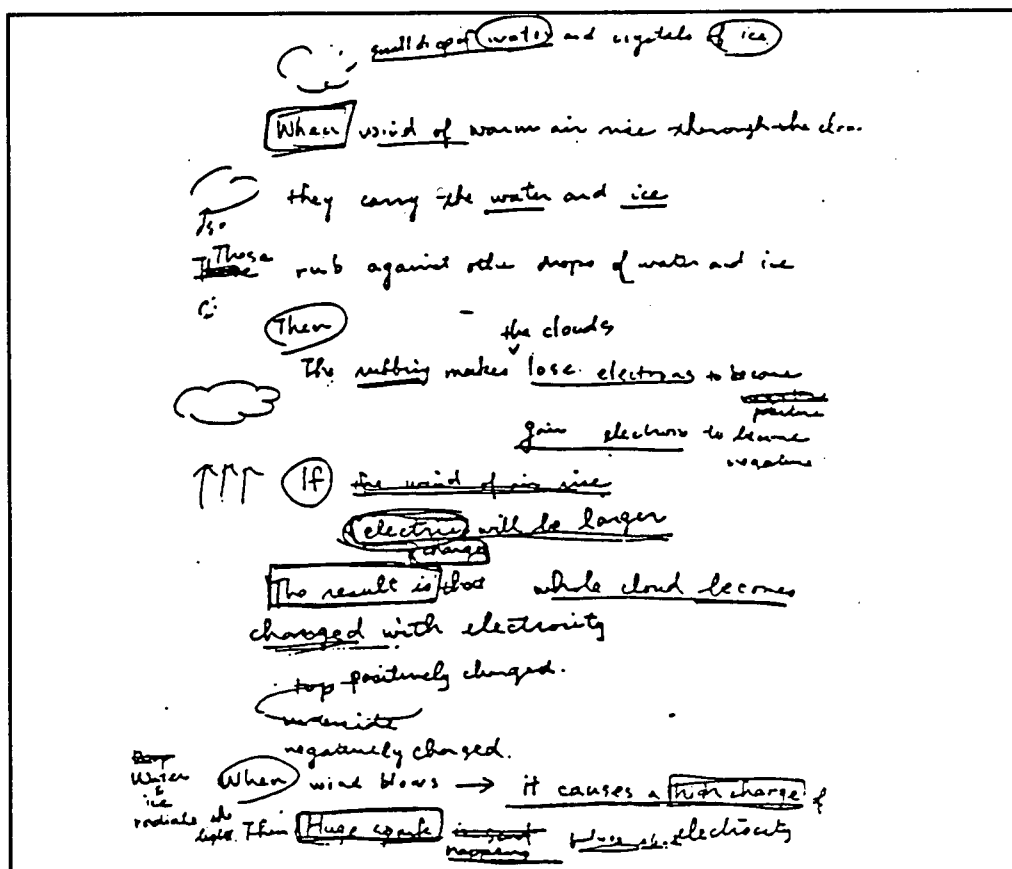 small drop of water and crystals of ice
When wind of warm air rise through the clou.
they carry the water and ice
Those rub against other drops of water and ice
Then
the clouds
The rubbing makes lose electrons to become
positive
gain electrons to become
negative
If the wind of air rise
electric will be larger
charge
The result is that whole cloud becomes
charged with electrosity
top positively charged.
underside
negatively charged.
When wind blows → it causes a high charge of
Water
&
ice
radiate the
light. Then Huge spark electrocity
happens